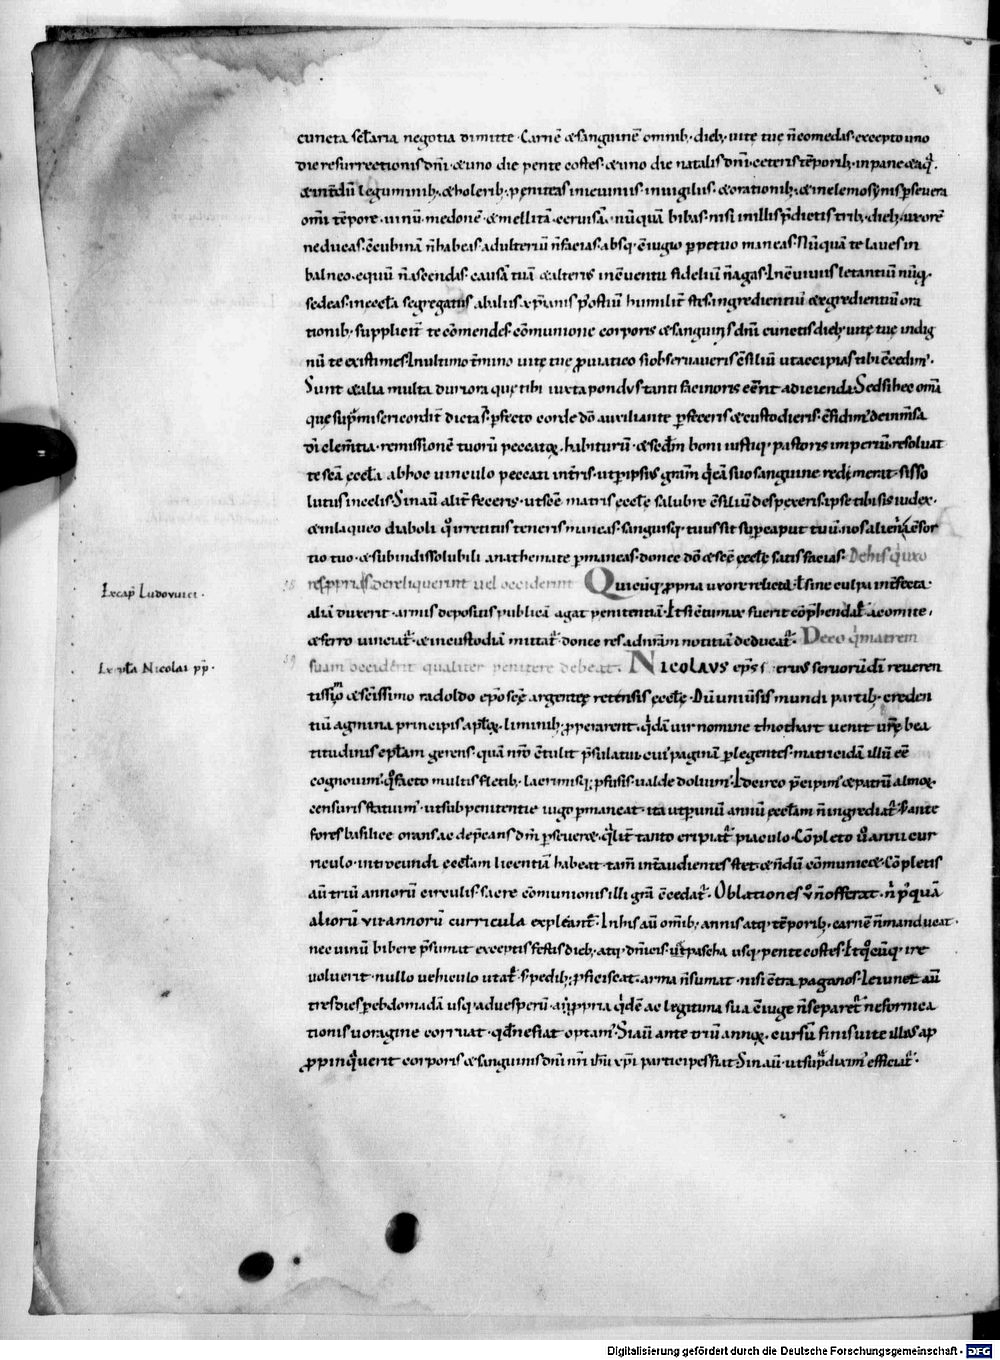 cuncta sęłaria negotia dimitte · Carnē & sanguinē omnib; dieb; uitę tuę n̄ comedas · excepto uno
die resurrectionis dn̄i · & uno die pentecostes · & uno die natalis dn̄i · ceteris tēporib; in pane & aq̄ ·
& int̄dū leguminib; & holerib; peniteas in ieiuniis · in uigiliis · & orationib; & in elemosynis p̱seuera
om̄i tēpore · uinū · medonē · & mellitā · ceruisā · nūquā bibas · nisi in illis p̄dictis trib; dieb; uxorē
ne ducas · c̄cubinā n̄ habeas · adulteriū n̄ facias · absq; c̄iugio p̱petuo maneas · Nūquā te laues in
balneo · equū n̄ ascendas · causā tuā & alteris in c̄uentu fidelium n̄ agas · In c̄uiuiis letantiū nūq̄
sedeas · in ęccła segregatus ab aliis xp̄ianis p̄ ostiū humilit̄ stes · ingredientiū & egredientiū ora
tionib; supplicit̄ te cōmendes · cōmunione corporis & sanguinis dn̄i cunctis dieb; uitę tuę indig
nū te existimes · In ultimo t̄mino uitę tuę p̱ uiatico si obseruaueris c̄siliū ut accipias tibi c̄cedim' ·
Sunt & alia multa duriora quę tibi iuxta pondus tanti facinoris eēnt adicienda · Sed si hęc om̄a
quę sup̱ misericordit̄ dicta s̄ · p̱fecto corde dō auxiliante p̱feceris & custodieris · c̄fidim' de inm̄sa
dī clem̄tia · remissionē tuorū peccatoꝝ habiturū · & sedm̄ boni iustiq; pastoris imperiū · resoluat
te sc̄a ęccła ab hoc uinculo peccati in t̄ris · ut p̱ ipsi' grām q̄ eā suo sanguine redemerat · sis so
lutus in celis · Sin aū alit̄ feceris · ut sc̄ę matris ęcclę salubre c̄siliū despexeris · ipse tibi sis iudex ·
& in laqueo diaboli q̊ irretitus teneris maneas · sanguisq; tuus sit sup̱ caput tuū · nos alieni a c̄sor
tio tuo · & sub indissolubili anathemate p̱maneas · donec dō & sc̄ę ęcclę satisfacias · De his q̊ uxo
res p̱prias dereliquerint uel occiderint Quicūq; p̱pria uxore relicta · ł sine culpa int̄fecta ·
Ex cap̄ Ludouuici ·
aliā duxerit · armis depositis publicā agat penitentiā · ł si c̄tumax fuerit cōp̄hendat̄ a comite ·
& ferro uinciat̄ · & in custodiā mittat̄ · donec res ad nr̄am notitiā deducat̄ · De eo q̊ matrem
Ex ep̄la Nicolai pp̄ ·
suam occiderit qualiter penitere debeat · NICOLAVS ep̄s seruus seruorū dī reueren
tissimo & sc̄issimo radoldo ep̄o sc̄ę argentę retensis ęcclę · Dū uniu̱sis mundi partib; creden
tiū agmina principis apl̄oꝝ liminib; p̱perarent · q̊dā uir nomine thiothart uenit ur̄ę bea
titudinis ep̄łam gerens · quā nr̄o c̄tulit p̄sulatui · cui' paginā p̱legentes · matricidā illū eē
cognouim' · q̊ facto multis fletib; lacrimisq; p̱fusis ualde doluim' · Idcirco p̄cipim' & patrū almoꝝ
censuris statuim' · ut sub penitentię iugo p̱maneat · ita ut p̱ unū annū ęccłam n̄ ingrediat̄ · S; ante
fores basilicę orans ac dep̄cans dm̄ p̱seueret · q̊lit̄ tanto eripiat̄ piaculo · Cōpleto u̱ anni cur
riculo · introeundi ęccłam licentiā habeat · tam̄ int̄ audientes stet · & n̄dū cōmunicet · Cōpletis
aū triū annorū circulis · sacrę cōmunionis illi grā c̄cedat̄ · Oblationes u̱ n̄ offerat · n̄ p̱quā
aliorū · VII · annorū curricula expleant̄ · In his aū om̄ib; annis atq; tēporib; carnē n̄ manducat
nec uinū bibere p̱sumat exceptis festis dieb; atq; dn̄icis · ut pascha usq; pentecostes · Et q̊cūq; ire
uoluerit · nullo uehiculo utat̄ · s; pedib; p̱ficiscat̄ · arma n̄ sumat · nisi c̄tra paganos · Ieiunet aū
tres dies p̱ ebdomadā usq; ad uesperū · A p̱pria q̊dē ac legitima sua c̄iuge n̄ separet̄ · ne fornica
tionis uoragine corruat · qd̄ ne fiat optam' · Si aū ante triū annoꝝ cursū finis uitę illius ap
p̱pinq̊uerit corporis & sanguinis dn̄i nr̄i ih̄u xp̄i particeps fiat · Sin aū · ut sup̱ diximus efficiat̄ ·
Digitalisierung gefördert durch die Deutsche Forschungsgemeinschaft - DFG